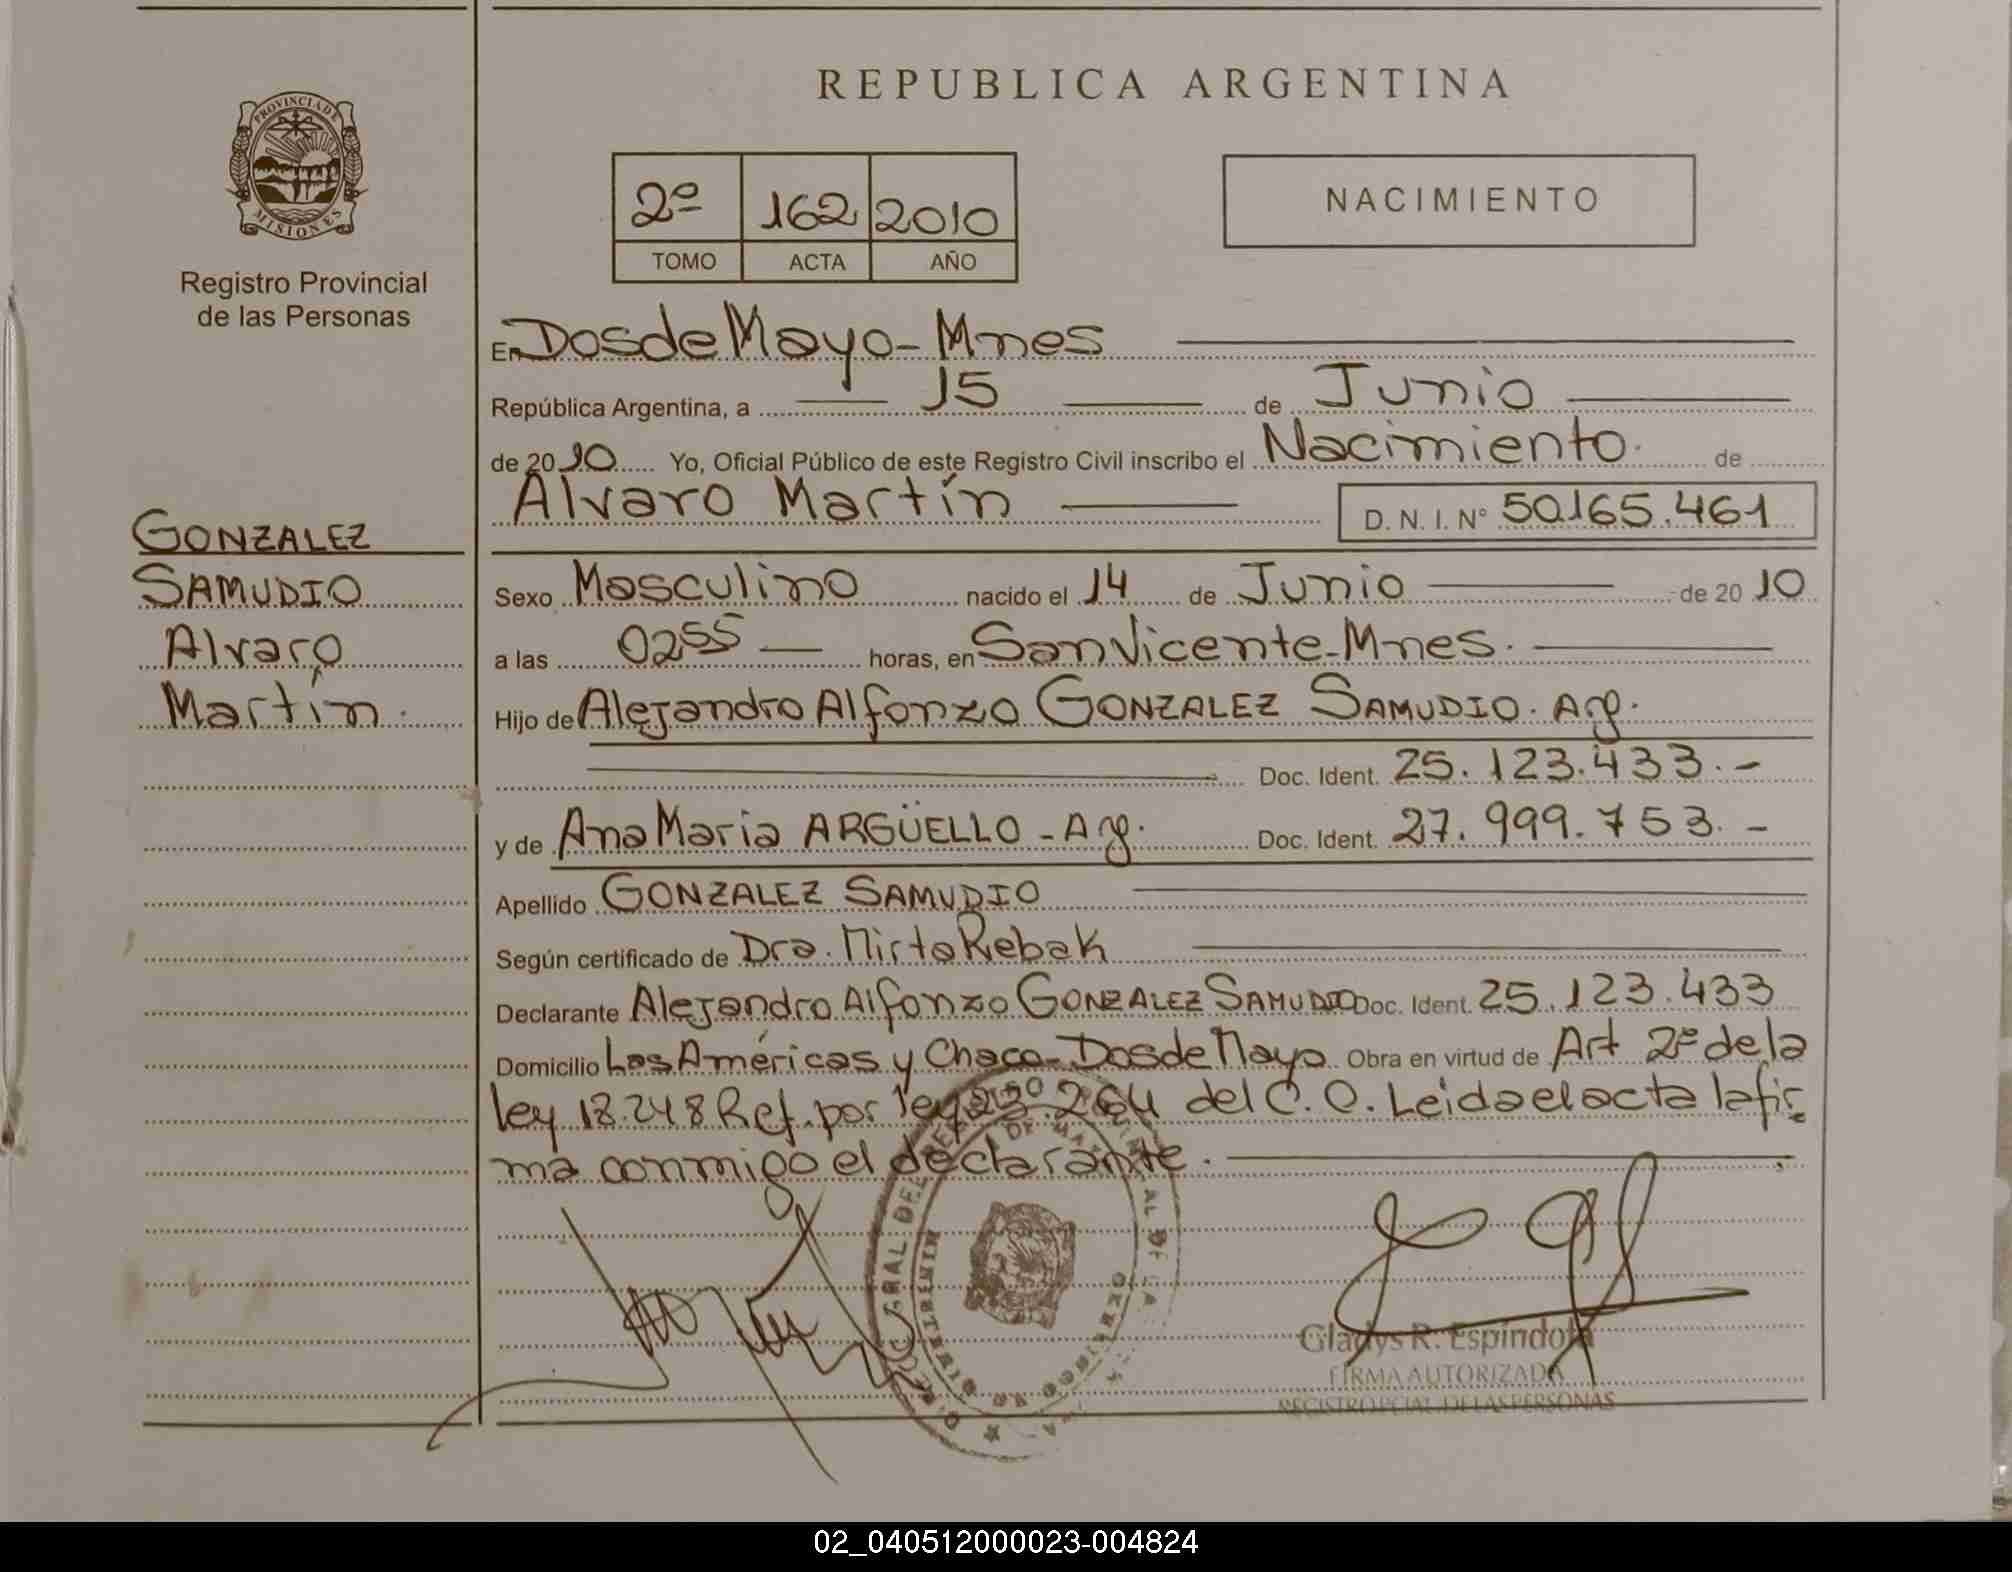 REPUBLICA ARGENTINA
PROVINCIA DE MISIONES
Registro Provincial
de las Personas
2º 162 2010
TOMO ACTA AÑO
NACIMIENTO
GONZALEZ
SAMUDIO
Alvaro
Martín.
En Dos de Mayo - Mnes
República Argentina, a 15 de Junio
de 2010 Yo, Oficial Público de este Registro Civil inscribo el Nacimiento. de
Alvaro Martín D. N. I. Nº 50.165.461
Sexo Masculino nacido el 14 de Junio de 2010
a las 02 55 horas, en San Vicente - Mnes.
Hijo de Alejandro Alfonzo GONZALEZ SAMUDIO. Arg.
Doc. Ident. 25.123.433.-
y de Ana Maria ARGÜELLO - Arg. Doc. Ident. 27.999.753.-
Apellido GONZALEZ SAMUDIO
Según certificado de Dra. Mirta Rebak
Declarante Alejandro Alfonzo GONZALEZ SAMUDIO Doc. Ident. 25.123.433
Domicilio Las Américas y Chaco - Dos de Mayo. Obra en virtud de Art 2º de la
ley 18.248 Ref. por ley 23.264 del C. C. Leida el acta la fir
ma conmigo el declarante.
Gladys R. Espíndola
FIRMA AUTORIZADA
REGISTRO PCIAL. DE LAS PERSONAS
02_040512000023-004824